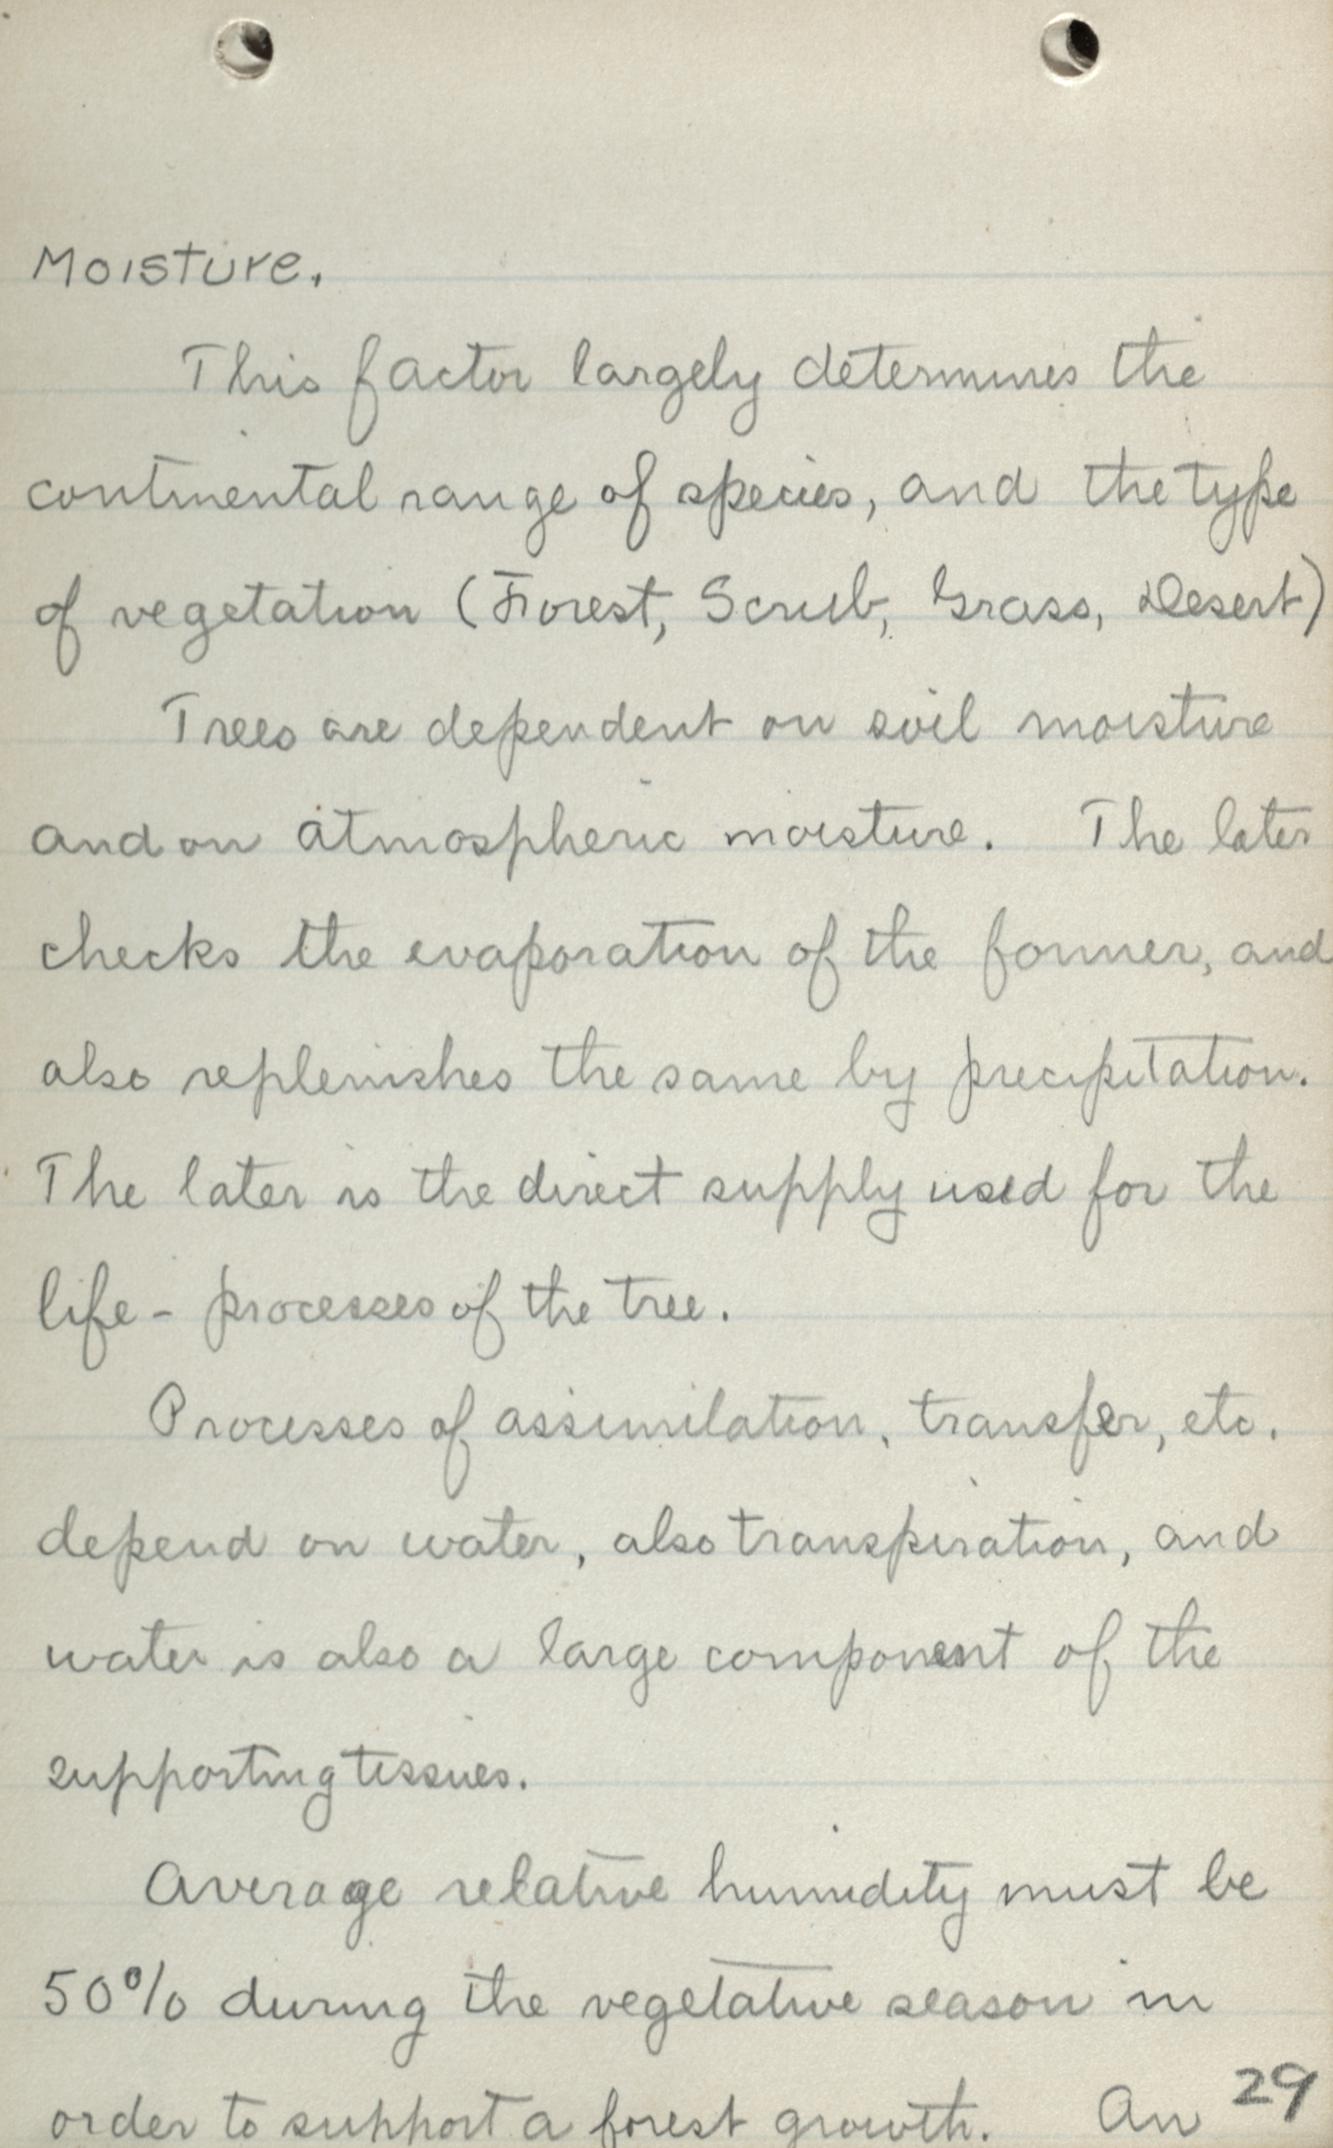 Moisture.
This factor largely determines the
continental range of species, and the type
of vegetation (Forest, Scrub, Grass, Desert)
Trees are dependent on soil moisture
and on atmospheric moisture. The later
checks the evaporation of the former, and
also replenishes the same by precipitation.
The later is the direct supply used for the
life - processes of the tree.
Processes of assimilation, transfer, etc.
depend on water, also transpiration, and
water is also a large component of the
supporting tissues.
Average relative humidity must be
50% during the vegetative season in
order to support a forest growth. An
29